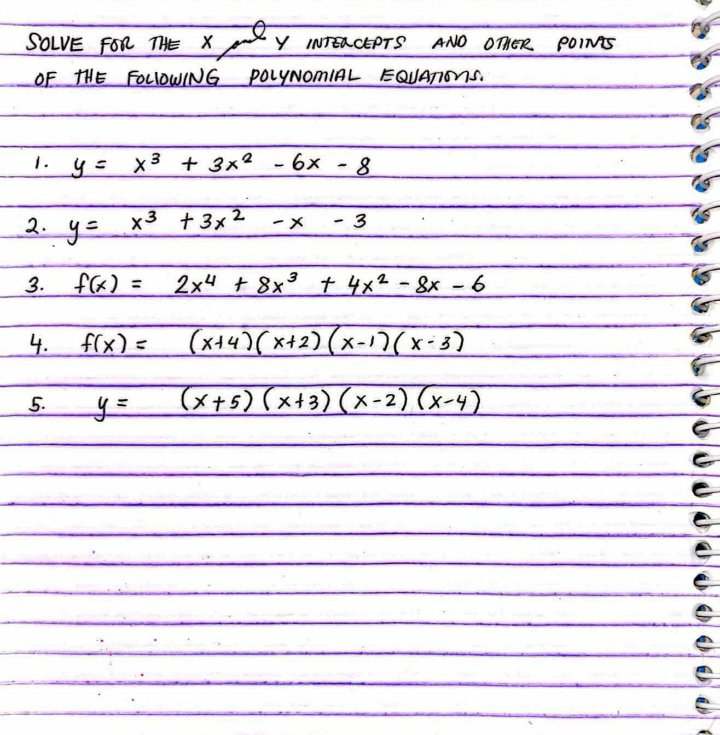 SOLVE FOR THE X and Y INTERCEPTS AND OTHER POINTS
OF THE FOLLOWING POLYNOMIAL EQUATIONS.
1. y = x³ + 3x² - 6x - 8
2. y = x³ + 3x² - x - 3
3. f(x) = 2x⁴ + 8x³ + 4x² - 8x - 6
4. f(x) = (x+4)(x+2)(x-1)(x-3)
5. y = (x+5)(x+3)(x-2)(x-4)